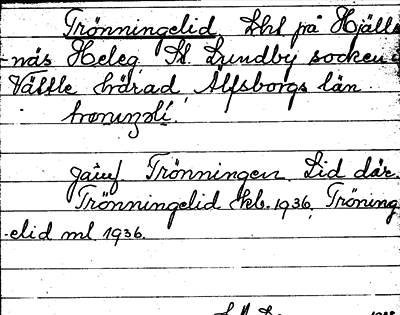 Trönningelid Lht på Hjälls
-näs Heleg. St. Lundby socken i
Vättle härad Älfsborgs län.
tronıŋəlí.
Jämf Trönningen. Lid där.
Trönningelid Ekb. 1936, Tröning
-elid ml 1936.